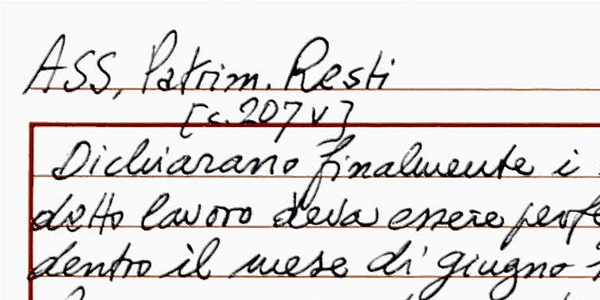 ASS, Patrim. Resti
[c. 207 v]
Dichiarano finalmente i
detto lavoro deva essere perfe
dentro il mese di giugno